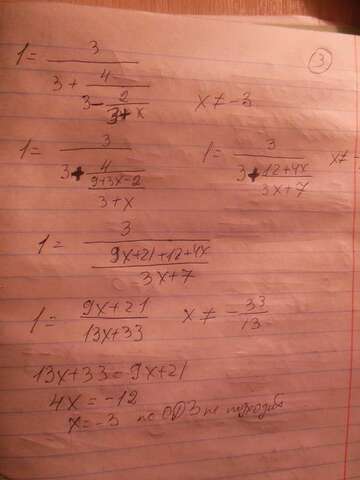 ③
1 = 3/(3 + 4/(3 - 2/(3 + x))) x ≠ -3
1 = 3/(3 + 4/((9+3x-2)/(3+x))) 1 = 3/(3 + (12+4x)/(3x+7)) x ≠
1 = 3/((9x+21+12+4x)/(3x+7))
1 = (9x+21)/(13x+33) x ≠ -33/13
13x+33 = 9x+21
4x = -12
x = -3 по ОДЗ не подходит